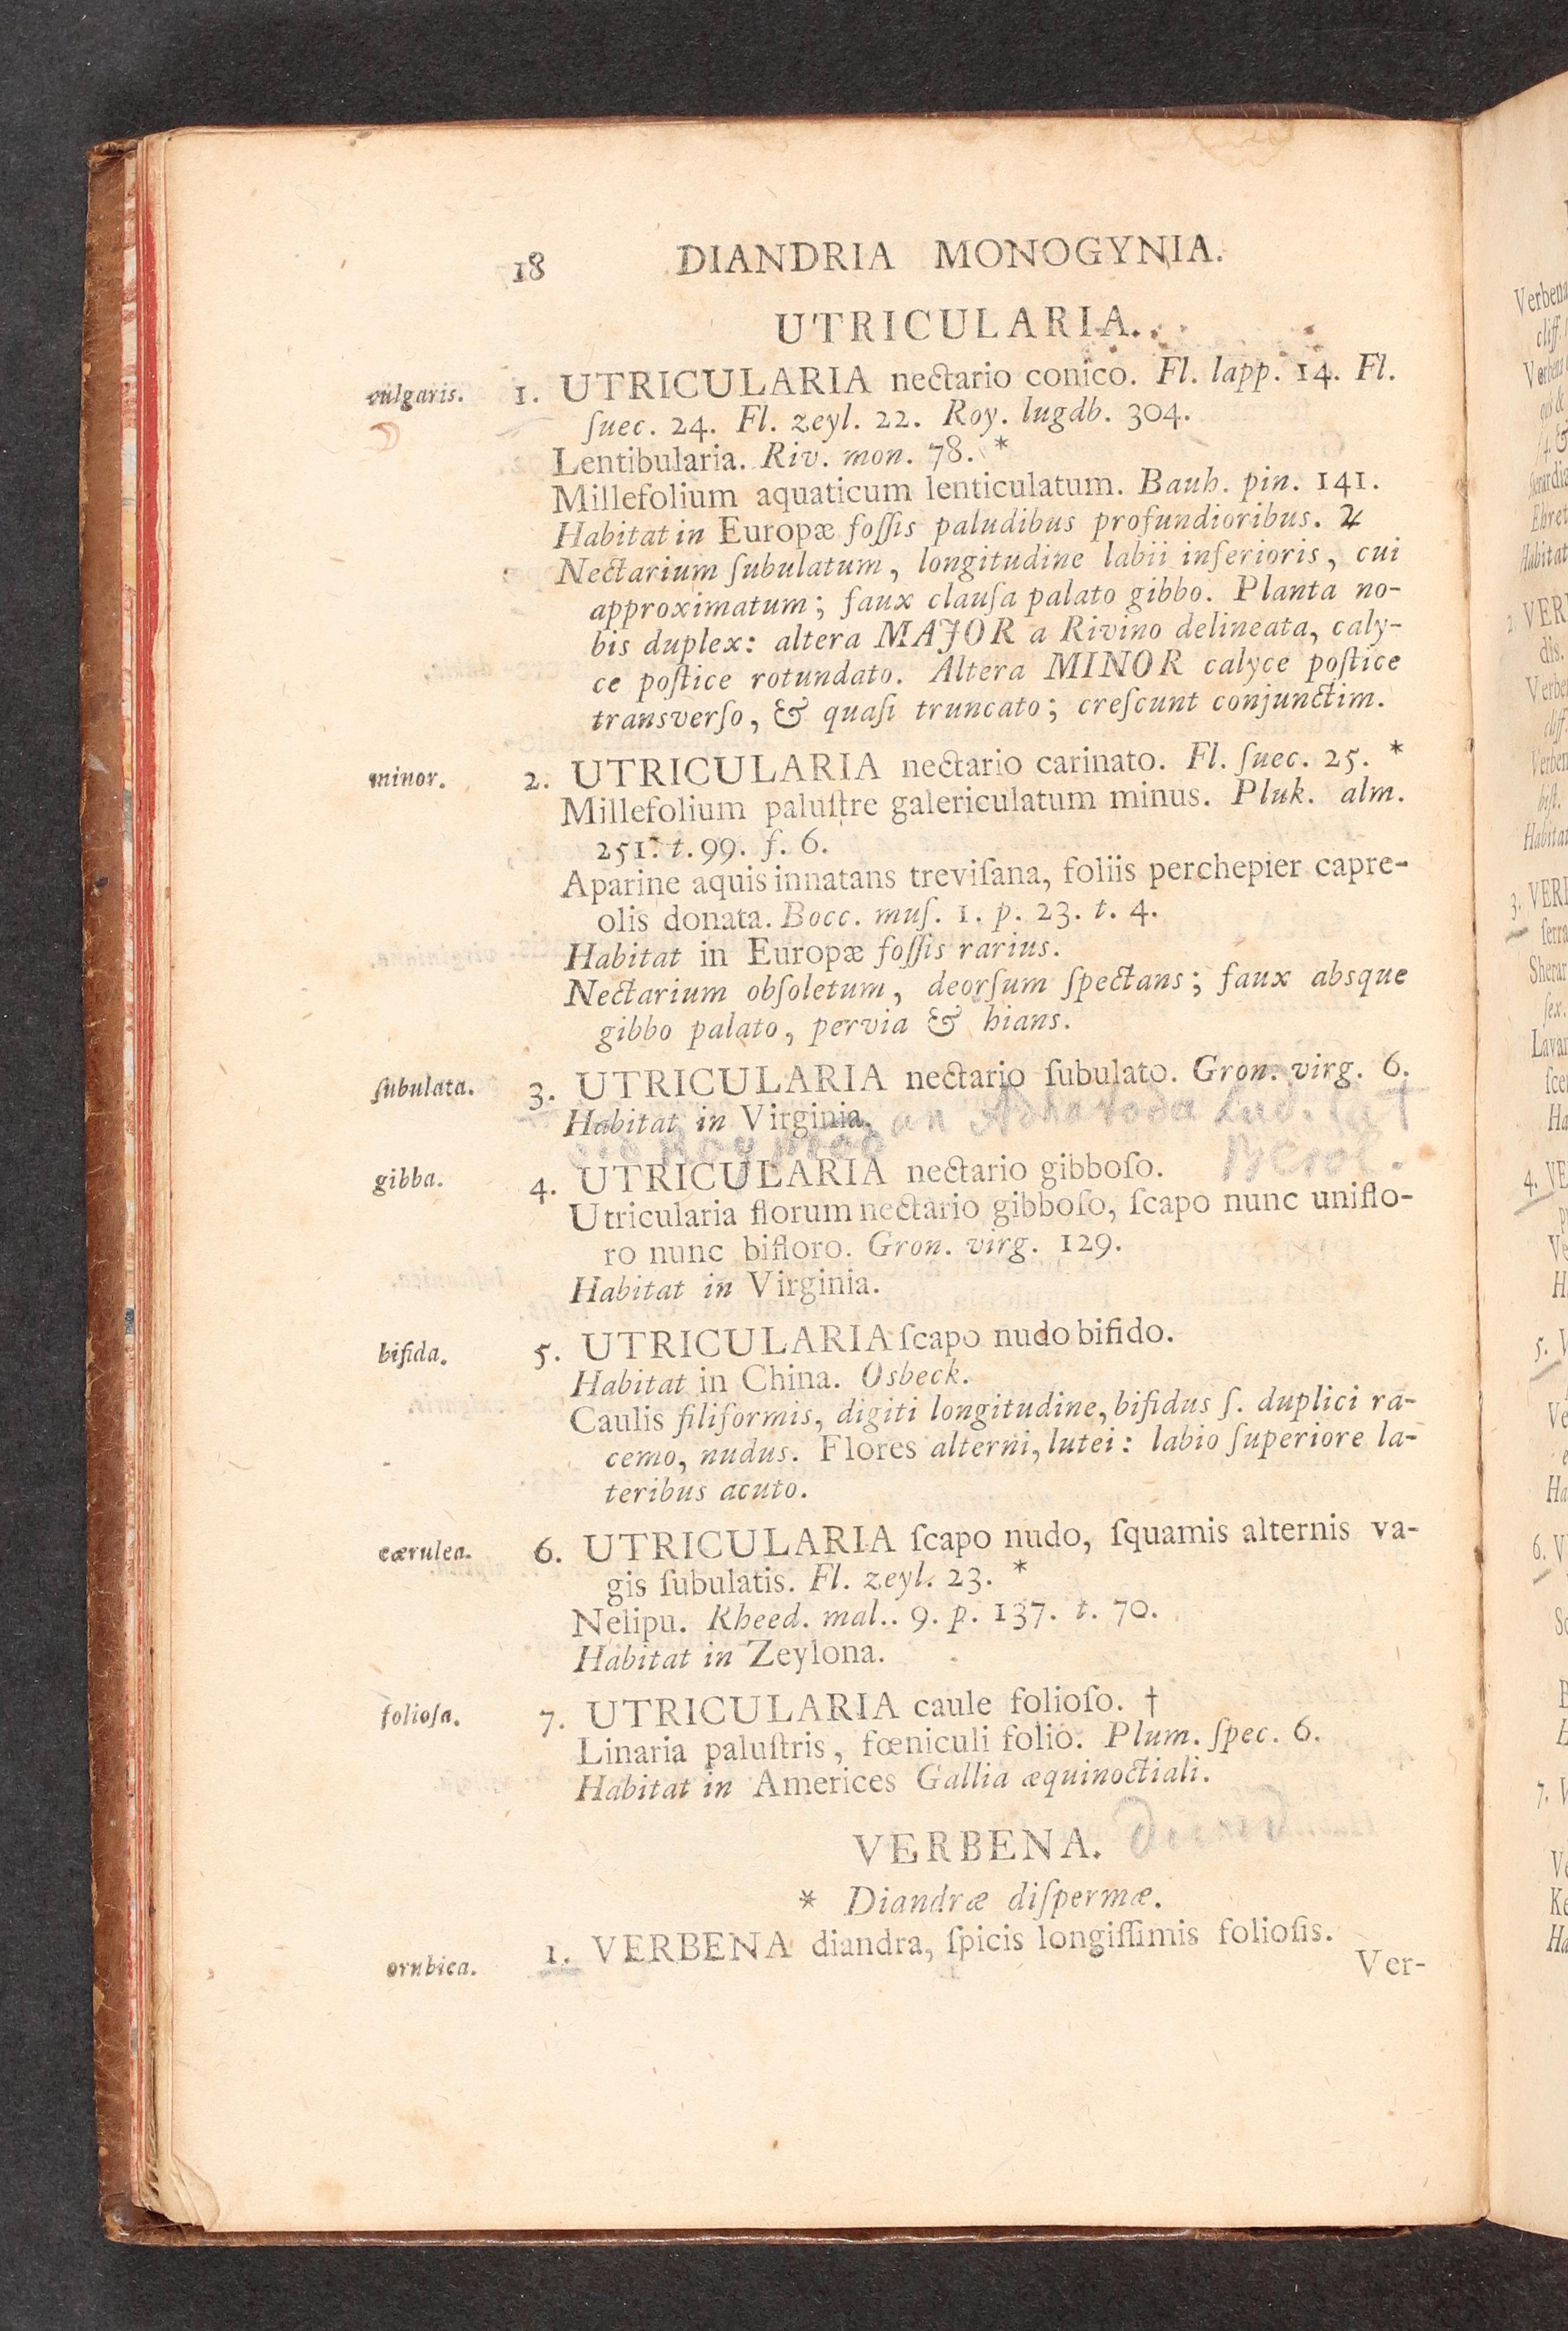 18 DIANDRIA MONOGYNIA.
UTRICULARIA.
vulgaris. 1. UTRICULARIA nectario conico. Fl. lapp. 14. Fl.
ſuec. 24. Fl. zeyl. 22. Roy. lugdb. 304.
Lentibularia. Riv. mon. 78. *
Millefolium aquaticum lenticulatum. Bauh. pin. 141.
Habitat in Europæ foſſis paludibus profundioribus. ♃
Nectarium ſubulatum, longitudine labii inferioris, cui
approximatum; faux clauſa palato gibbo. Planta no-
bis duplex: altera MAJOR a Rivino delineata, caly-
ce poſtice rotundato. Altera MINOR calyce poſtice
transverſo, & quaſi truncato; creſcunt conjunctim.
minor. 2. UTRICULARIA nectario carinato. Fl. ſuec. 25. *
Millefolium paluſtre galericulatum minus. Pluk. alm.
251. t. 99. f. 6.
Aparine aquis innatans treviſana, foliis perchepier capre-
olis donata. Bocc. muſ. 1. p. 23. t. 4.
Habitat in Europæ foſſis rarius.
Nectarium obſoletum, deorſum ſpectans; faux absque
gibbo palato, pervia & hians.
ſubulata. 3. UTRICULARIA nectario ſubulato. Gron. virg. 6.
Habitat in Virginia. an Adhatoda
gibba. 4. UTRICULARIA nectario gibboſo.
Utricularia florum nectario gibboſo, ſcapo nunc uniflo-
ro nunc bifloro. Gron. virg. 129.
Habitat in Virginia.
bifida. 5. UTRICULARIA ſcapo nudo bifido.
Habitat in China. Osbeck.
Caulis filiformis, digiti longitudine, bifidus ſ. duplici ra-
cemo, nudus. Flores alterni, lutei: labio ſuperiore la-
teribus acuto.
cærulea. 6. UTRICULARIA ſcapo nudo, ſquamis alternis va-
gis ſubulatis. Fl. zeyl. 23. *
Nelipu. Rheed. mal.. 9. p. 137. t. 70.
Habitat in Zeylona.
folioſa. 7. UTRICULARIA caule folioſo. †
Linaria paluſtris, fœniculi folio. Plum. ſpec. 6.
Habitat in Americes Gallia æquinoctiali.
VERBENA.
* Diandræ diſpermæ.
orubica. 1. VERBENA diandra, ſpicis longiſſimis folioſis.
Ver-